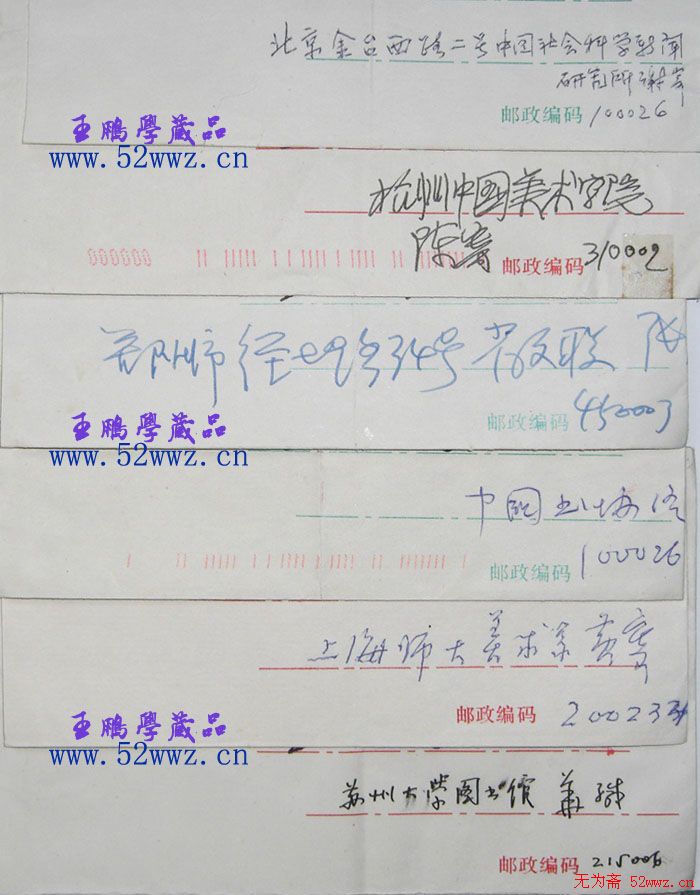 北京金台西路二号中国社会科学新闻
研究所谢寄
邮政编码 100026
王鹏学藏品
www.52wwz.cn
杭州中国美术学院
陈寄
邮政编码 310002
郑州市经七路34号省文联
王鹏學藏品
邮政编码 450003
www.52wwz.cn
中国书协
100026
邮政编码
上海师大美术系黄寄
邮政编码 200233
王鹏學藏品
www.52wwz.cn
苏州大学图书馆 华
邮政编码 215006
无为斋 52wwz.cn